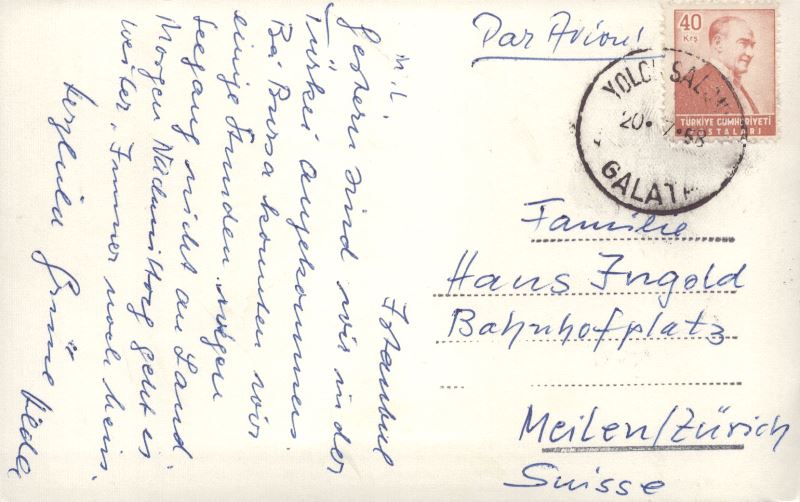 M. L.
Istanbul
Gestern sind wir in der
Türkei angekommen.
Bei Bursa konnten wir
einige Stunden wegen
Seegang nicht an Land.
Morgen Nachmittag geht es
weiter. Immer noch heiss.
herzliche Grüsse Hilde
Par Avion!
40
Krş
TÜRKİYE CUMHURİYETİ
POSTALARI
YOLCU SALONU
20. 7. 58
GALATA
Familie
Hans Ingold
Bahnhofplatz
Meilen/Zürich
Suisse